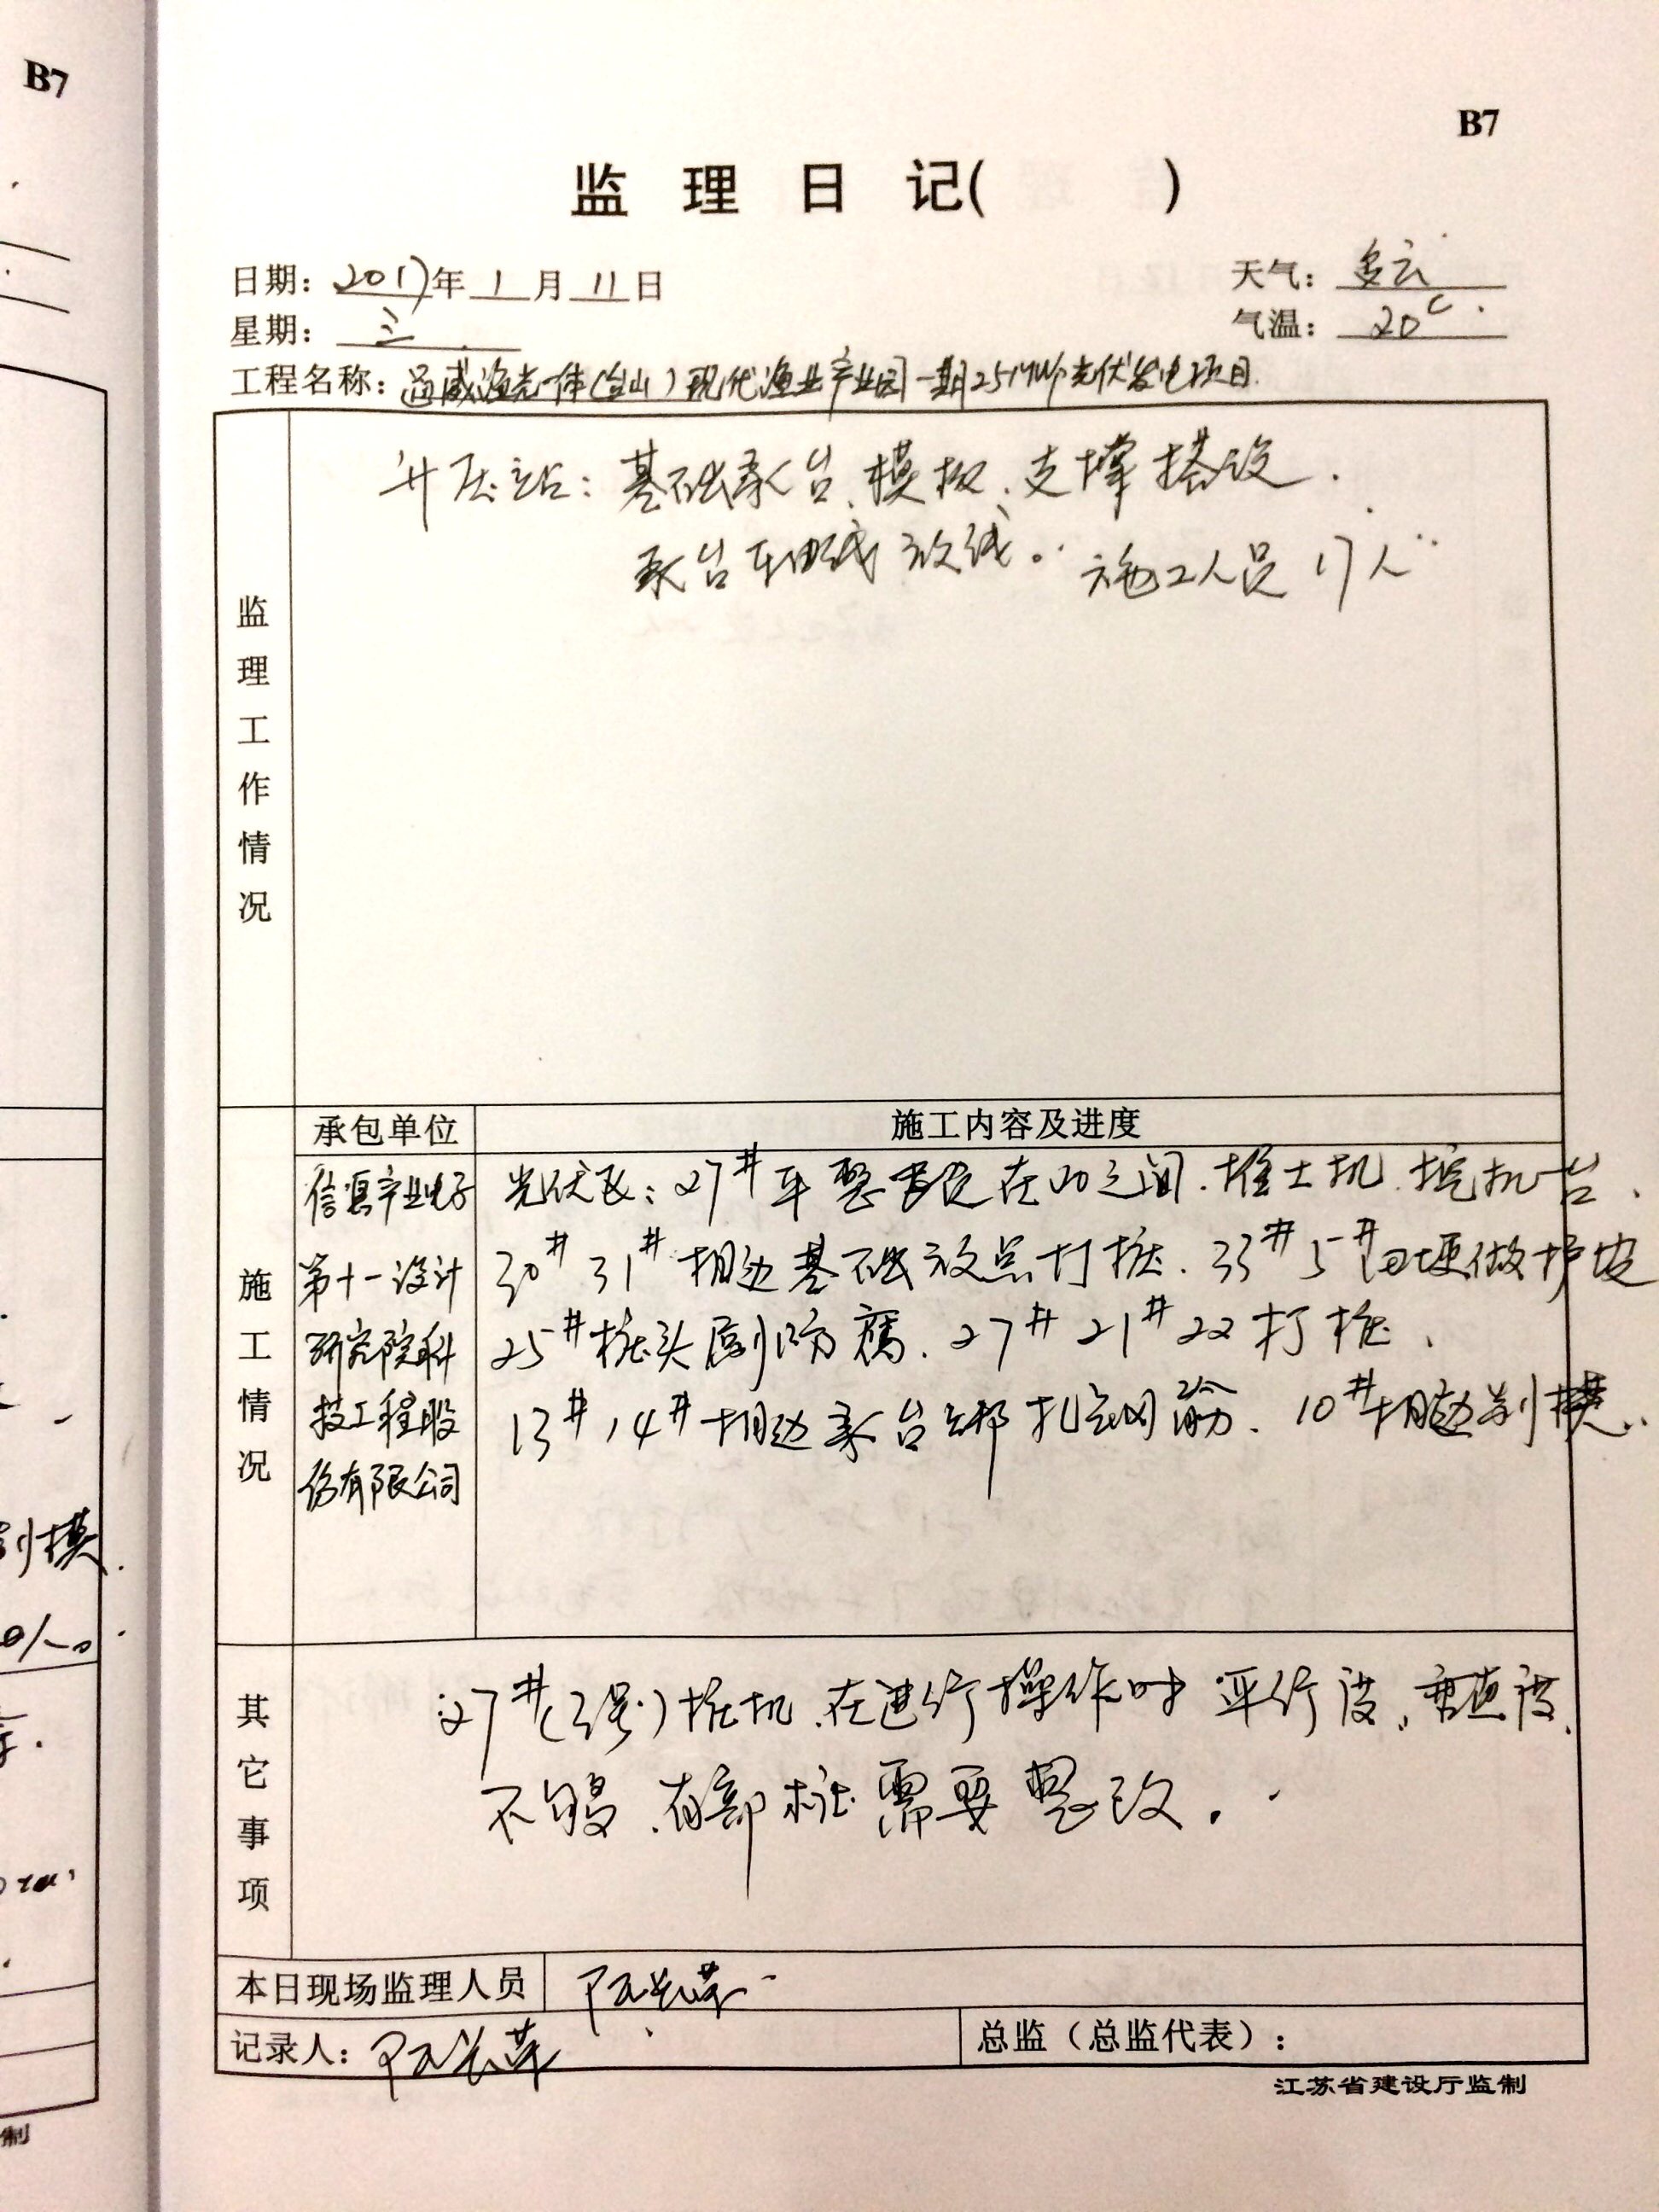 B7
B7
监 理 日 记( )
日期: 2017年 1 月 11 日
天气: 多云
星期: 三
气温: 20℃
工程名称: 通威渔光一体(台山)现代渔业产业园一期25MWp光伏发电项目.
监理工作情况
升压站: 基础承台、模板、支撑搭设.
承台轴线放线。施工人员 17人
承包单位
施工内容及进度
施工情况
信息产业电子
第十一设计
研究院科
技工程股
份有限公司
光伏区: 27# 平整 在 之间. 推土机. 挖机一台.
30# 31# 相边基础放点打桩. 33# 5# 田埂做护坡
25# 桩头刷防腐. 27# 21# 22 打桩.
13# 14# 相边承台绑扎钢筋. 10# 相边 模.
其它事项
27#(3号)桩机.在进行操作时 平行度.垂直度.
不够.有部桩需要整改.
本日现场监理人员
记录人:
总监（总监代表）:
江苏省建设厅监制
模.
制